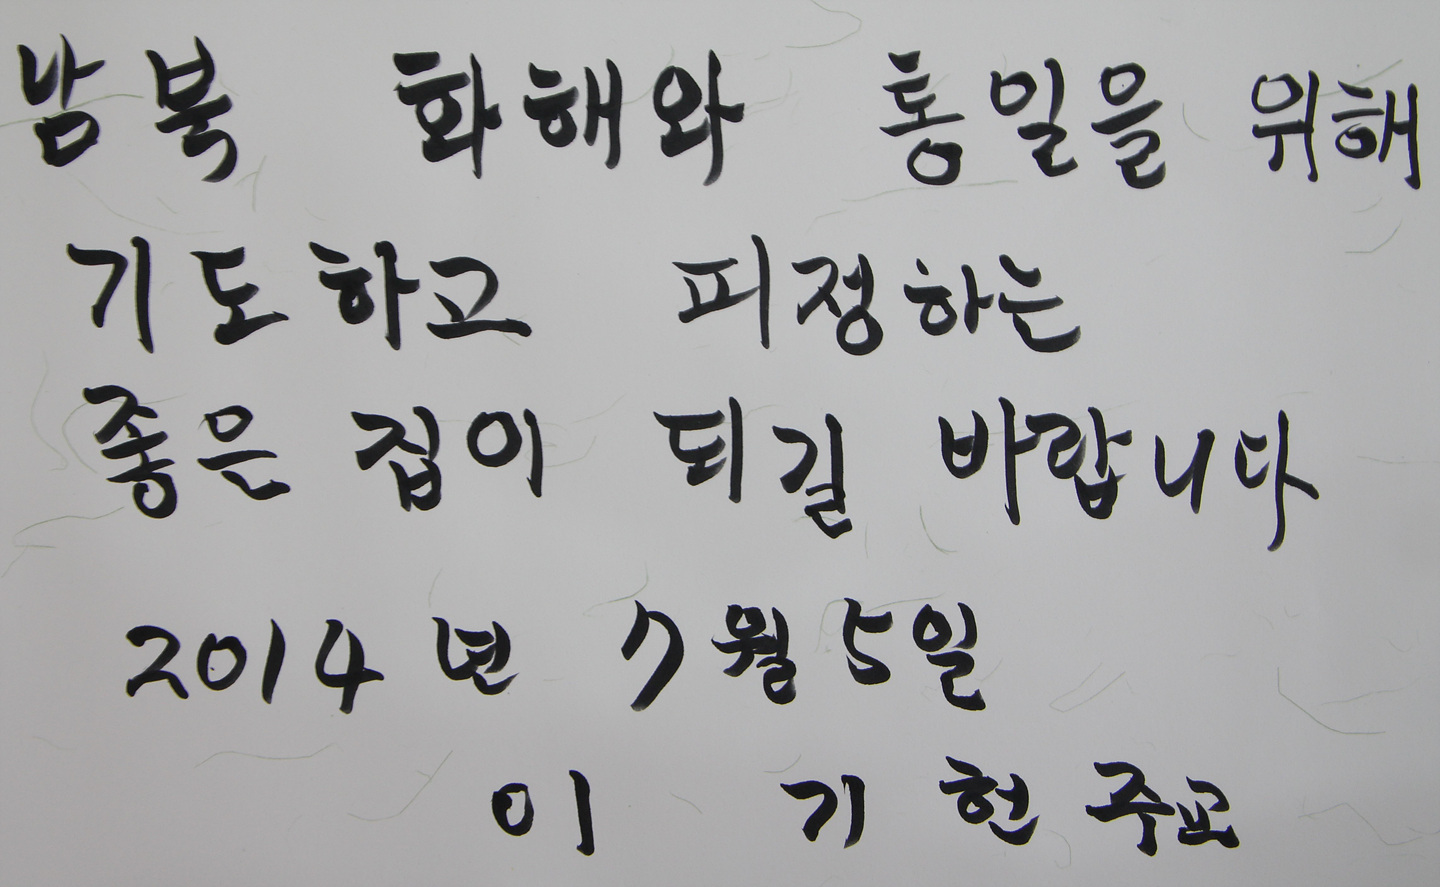 남북 화해와 통일을 위해
기도하고 피정하는
좋은 집이 되길 바랍니다
2014년 7월 5일
이 기헌 주교